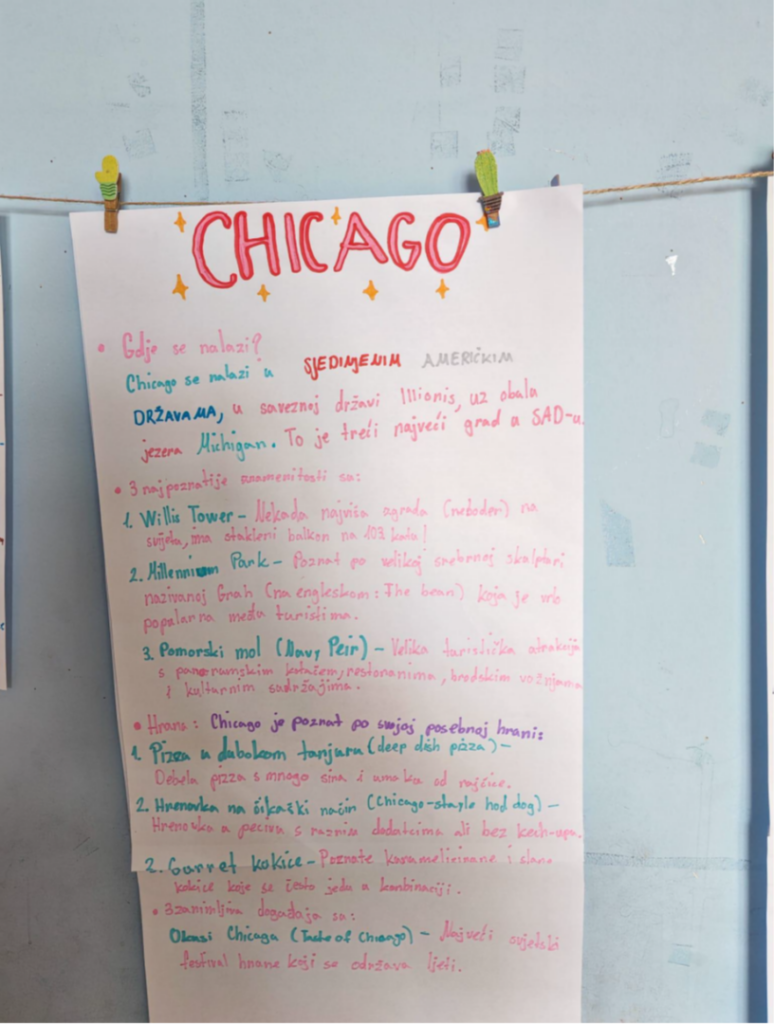 CHICAGO
• Gdje se nalazi?
Chicago se nalazi u SJEDINJENIM AMERIČKIM
DRŽAVAMA, u saveznoj državi Illionis, uz obalu
jezera Michigan. To je treći najveći grad u SAD-u.
• 3 najpoznatije znamenitosti su:
1. Willis Tower - Nekada najviša zgrada (neboder) na
svijetu, ima stakleni balkon na 103 katu!
2. Millennium Park - Poznat po velikoj srebrnoj skulpturi
nazivanoj Grah (na engleskom: The bean) koja je vrlo
popularna među turistima.
3. Pomorski mol (Navy Peir) - Velika turistička atrakcija
s panoramskim kotačem, restoranima, brodskim vožnjama
i kulturnim sadržajima.
• Hrana: Chicago je poznat po svojoj posebnoj hrani:
1. Pizza u dubokom tanjuru (deep dish pizza) -
Debela pizza s mnogo sira i umaka od rajčice.
2. Hrenovka na čikaški način (Chicago-stayle hod dog) -
Hrenovka u pecivu s raznim dodatcima ali bez kech-upa.
3. Garret kokice - Poznate karamelizirane i slane
kokice koje se često jedu u kombinaciji.
• 3 zanimljiva događaja su:
Okusi Chicaga (Taste of Chicago) - Najveći svjetski
festival hrane koji se održava ljeti.